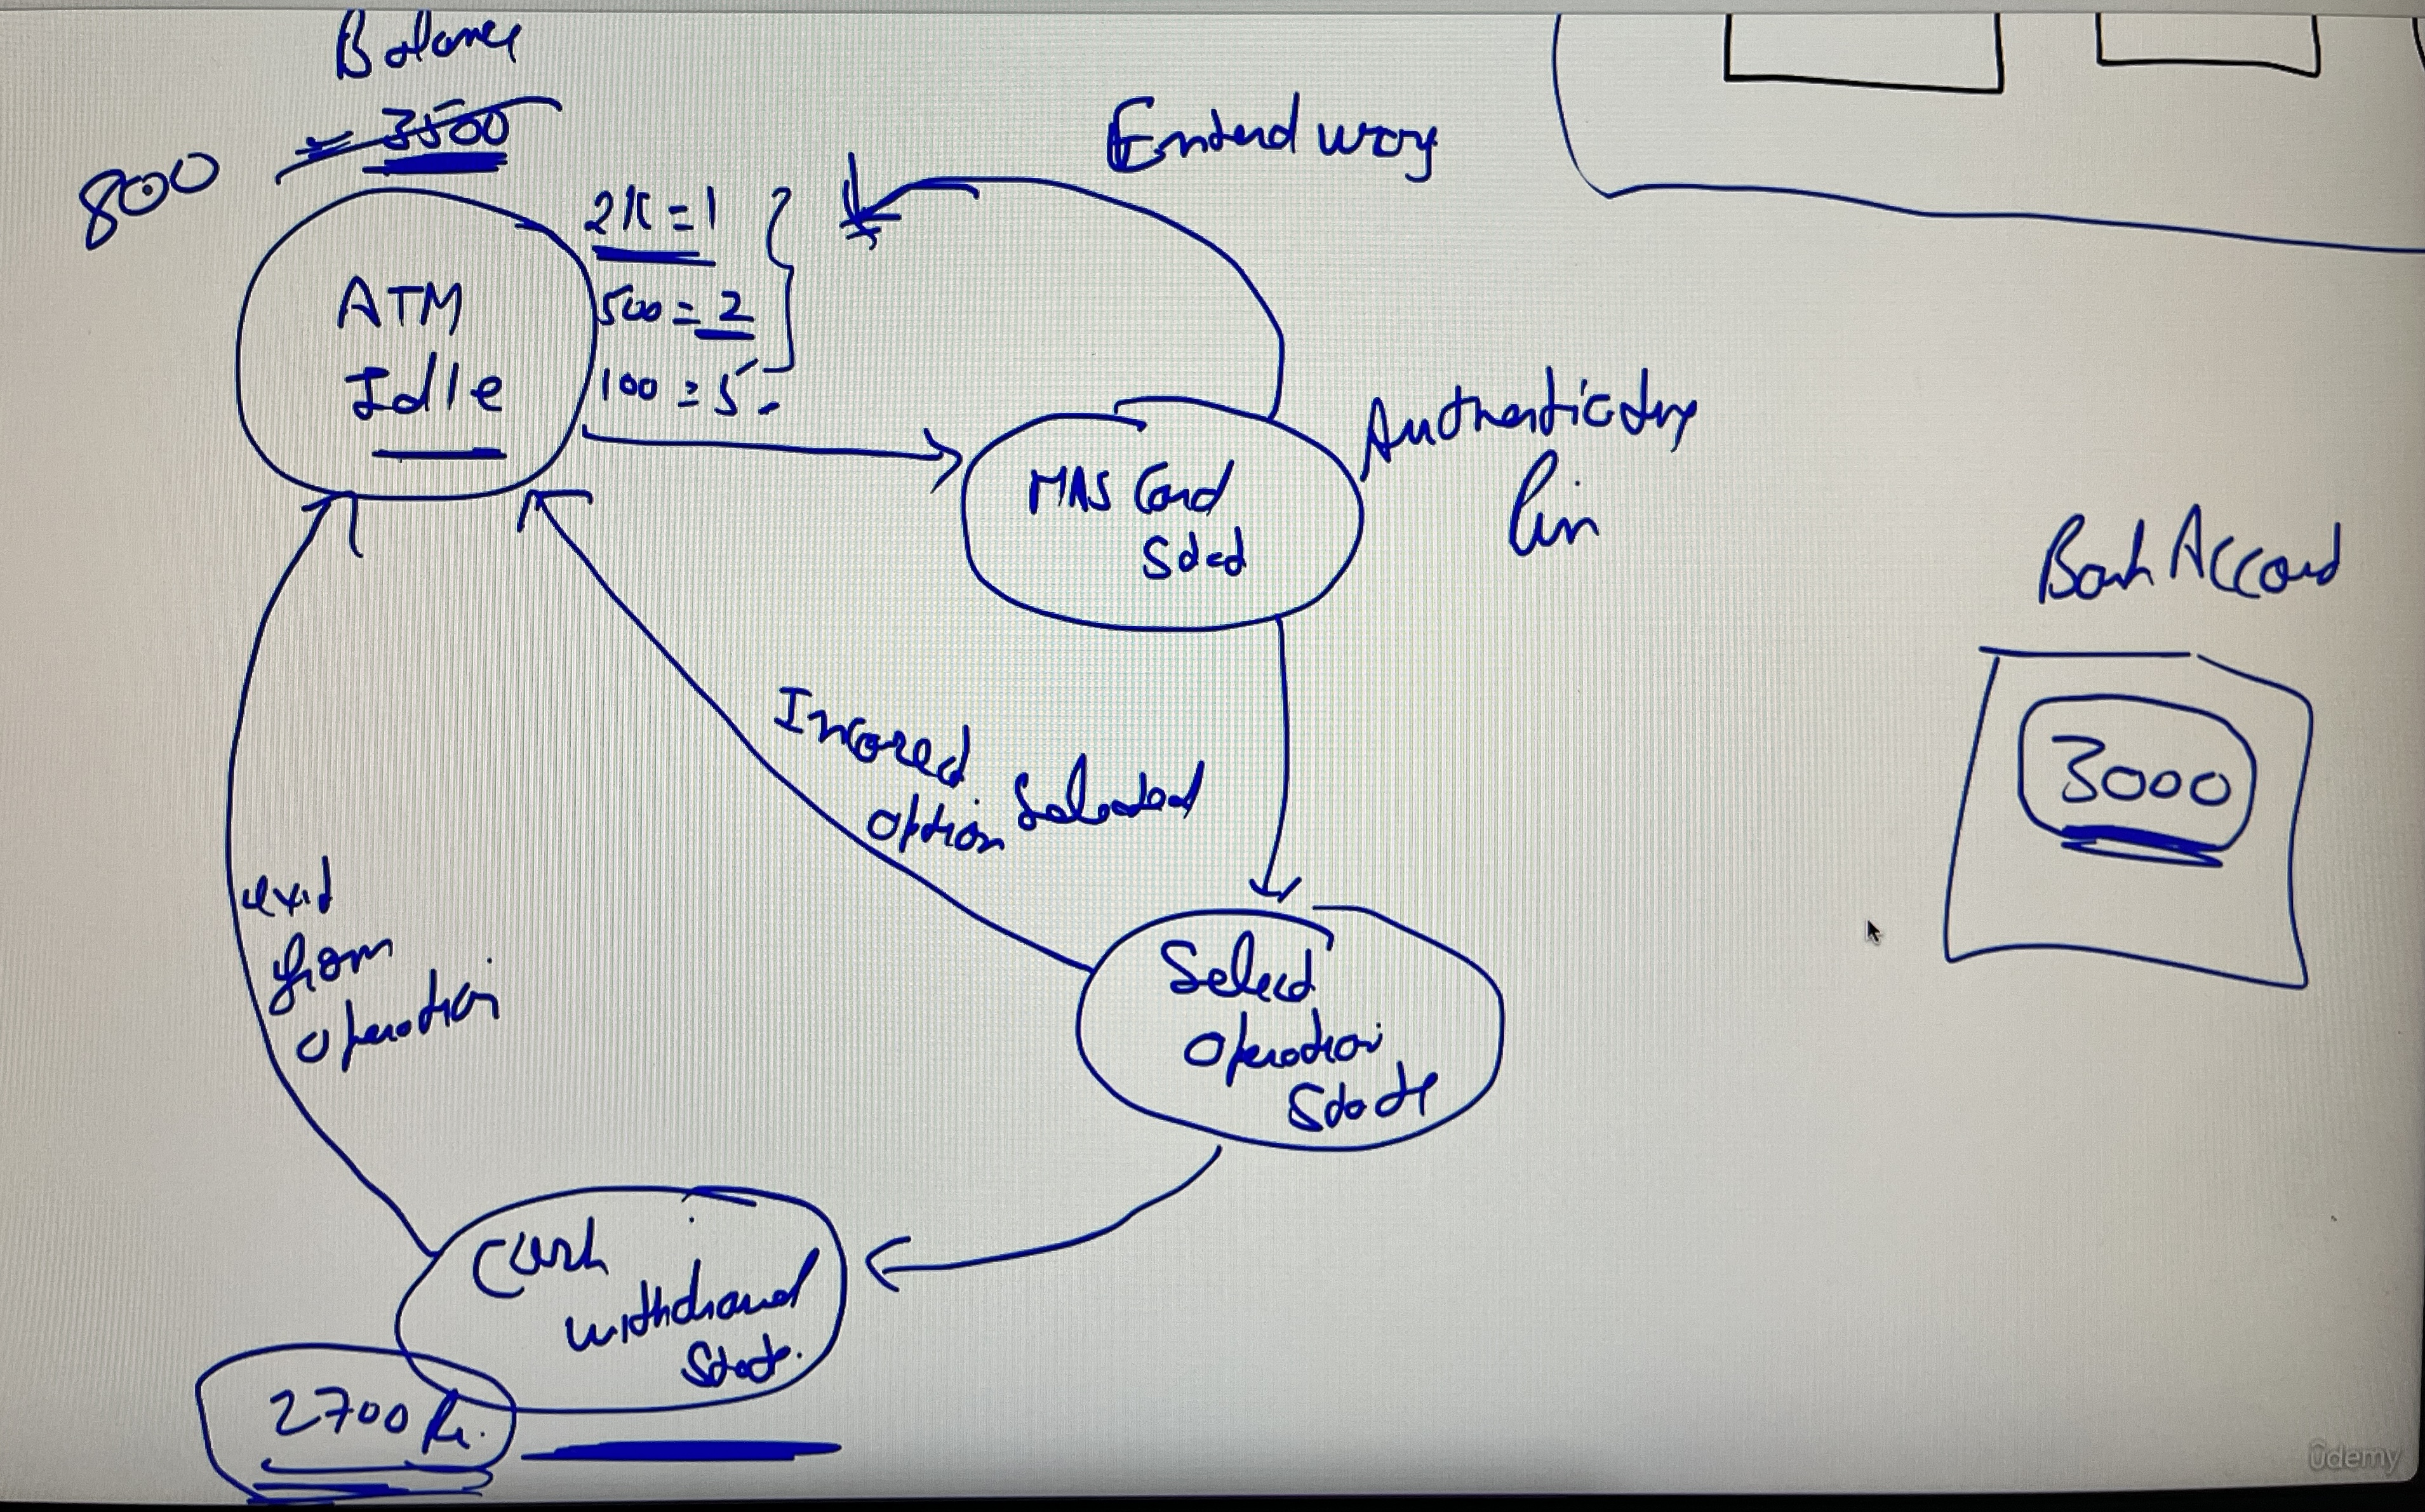 Balance
= 3500
800
2K = 1
500 = 2
100 = 5
Entered wrong
ATM
Idle
Authenticating
Pin
HAS Card
State
Bank Account
3000
Incorrect
option Selected
exit
from
operation
Select
operation
State
Cash
withdrawal
State.
2700 Rs.
ûdemy